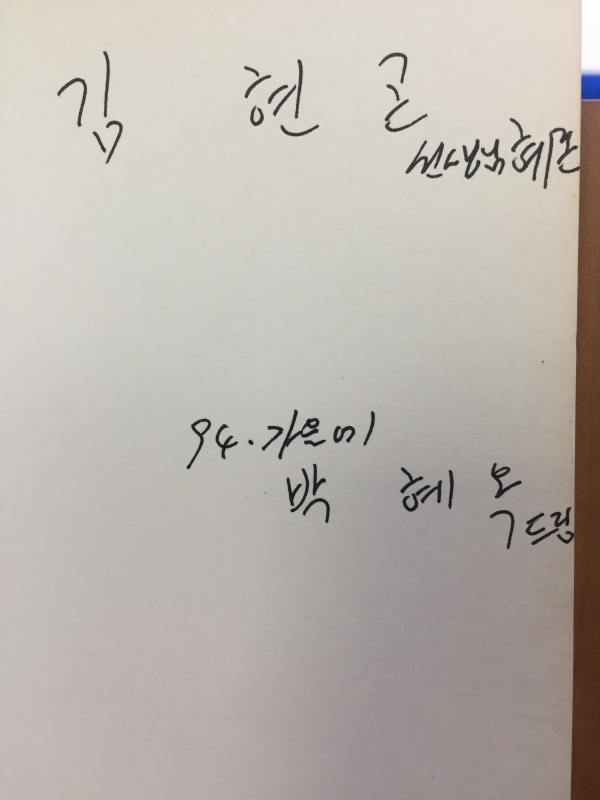 김 현 곤
선생님 혜존
94. 가을에
박 혜옥
드림